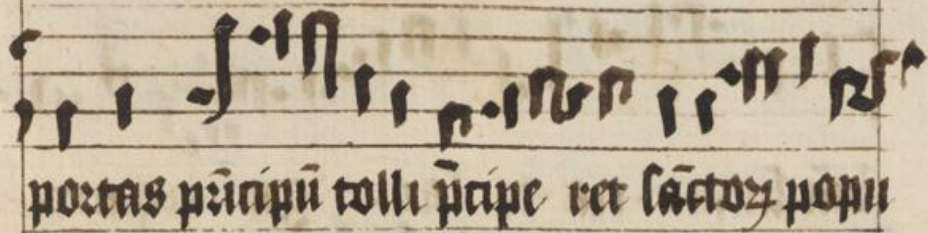 portas prīcipū tolli p̄cipe ret sāctoꝝ popu